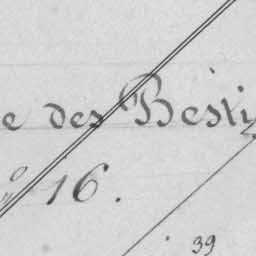 e des Besti
16.
39